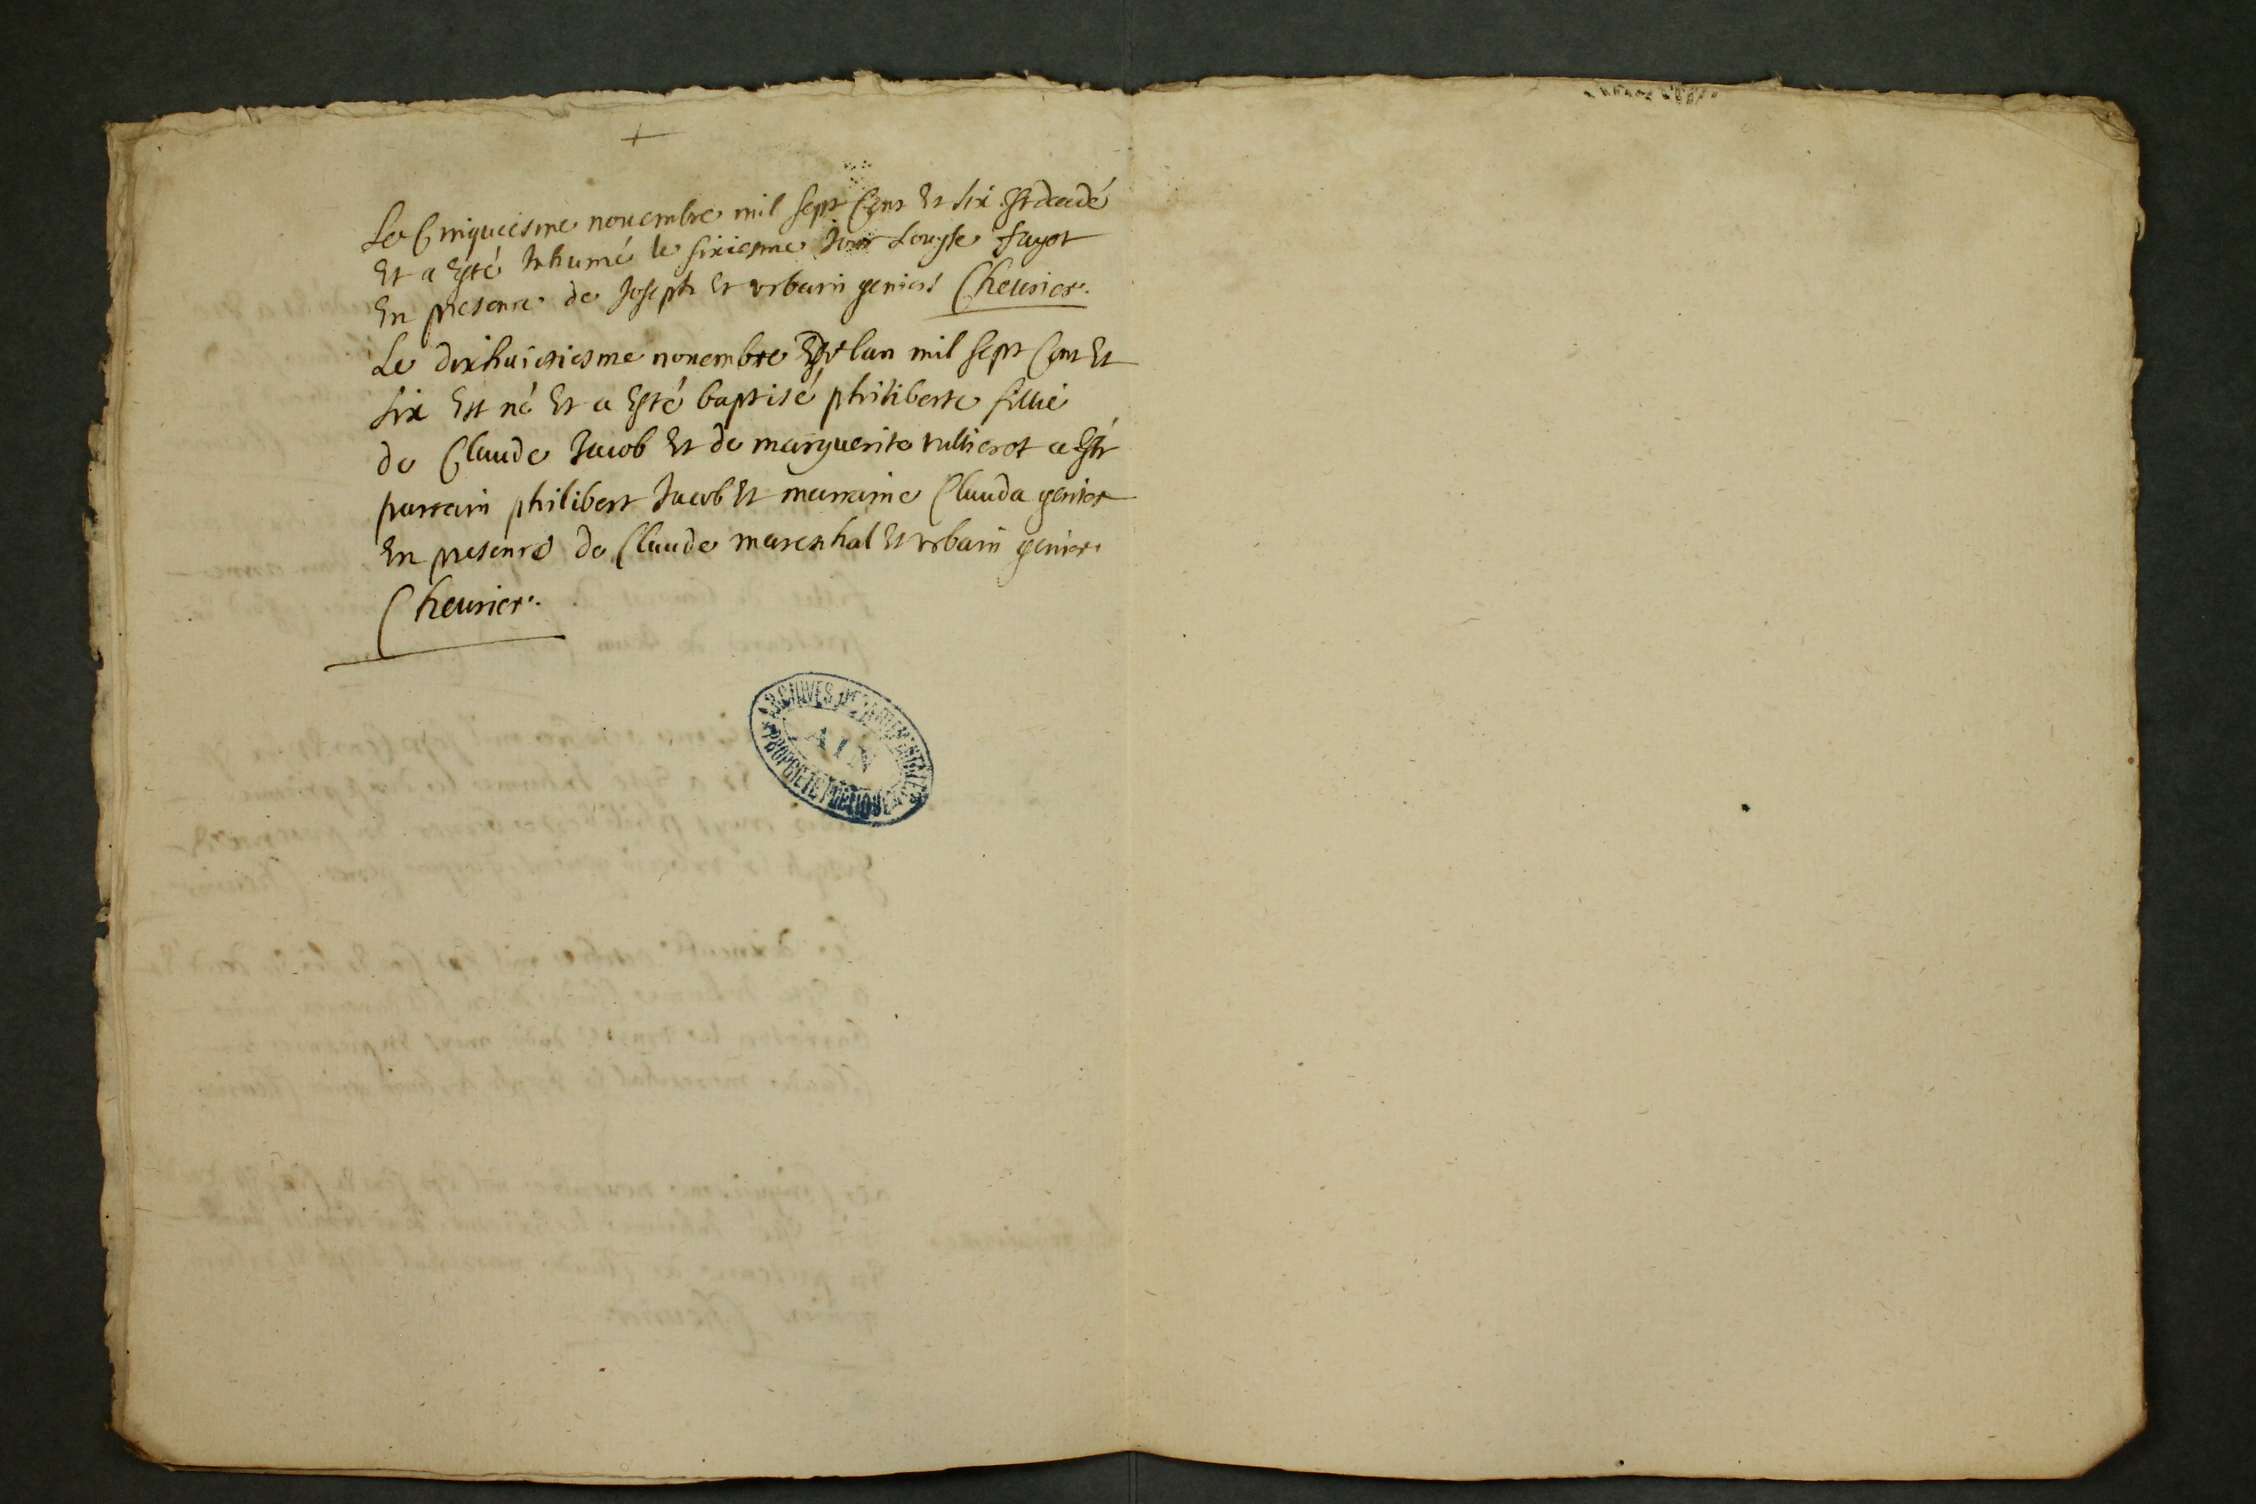 Le Cinquiesme nouembre mil sept Cent Et six Est decedé
Et a Esté Inhumé le sixiesme Jour Louyse fayot
En presence de Joseph Et vrbain geniers Cheurier.
Le dixhuictiesme nouembre lan mil sept Cent Et
six Est né Et a Esté baptisé philiberte fillie
de Claude Jacob Et de marguerite vullierot a Esté
parrain philibert Jacob Et marraine Clauda genier
En presence de Claude mareschal Et vrbain genier.
Cheurier.
ARCHIVES DEPARTEMENTALES
AIN
PROPRIETE PUBLIQUE